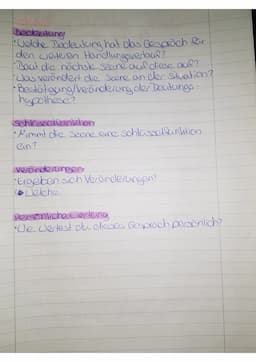 Bedeutung
• Welche Bedeutung hat das Gespräch für
den weiteren Handlungsverlauf?
• Baut die nächste Szene auf diese auf?
• Was verändert die Szene an der Situation?
• Bestätigung/Veränderung der Deutungs-
hypothese?
Schlüsselfunktion
• Nimmt die Szene eine Schlüsselfunktion
ein?
Veränderungen
• Ergeben sich Veränderungen?
↳ Welche
persönliche Wertung
• Wie wertest du dieses Gespräch persönlich?